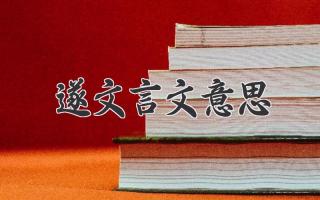 遂文言文意思